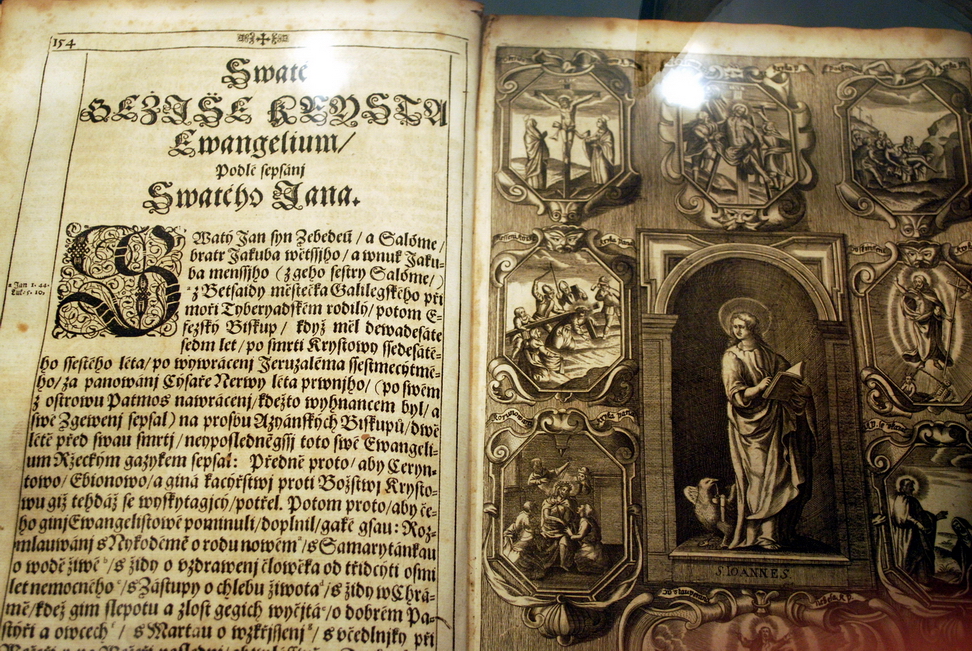 154
Swaté
GEŽIŠE KRYSTA
Ewangelium/
Podlé sepsánj
Swatého Jana.
SWatý Jan syn Zebedeů / a Salóme /
bratr Jakuba wětssjho / a wnuk Jaku-
ba menssjho ( z geho sestry Salóme / )
z Betsaidy městečka Galilegského při
moři Tyberyadském rodilý / potom E-
fezský Biskup / když měl dewadesáte
sedm let / po smrti Krystowy ssedesáté-
ho ssestého léta / po wywrácenj Jeruzaléma ssestmecytmé-
ho / za panowánj Cýsaře Nerwy léta prwnjho / ( po swém
z ostrowu Patmos nawrácenj / kdežto wyhnancem byl / a
swé Zgewenj sepsal ) na prosbu Azyánských Biskupů / dwě
létě před swau smrtj / neyposledněgšj toto swé Ewangeli-
um Ržeckým gazykem sepsal : Předně proto / aby Ceryn-
towo / Ebionowo / a giná kacýřstwj proti Božstwj Krysto-
wu giž tehdáž se wyskytagjcý / potřel. Potom proto / aby če-
ho ginj Ewangelistowé pominuli / doplnil / gaké gsau : Roz-
mlauwánj s Nykodémě o rodu nowém / s Samarytánkau
o wodě žiwé / s židy o vzdrawenj člowěka od třidcýti osmi
let nemocného / s Zástupy o chlebu žiwota / s židy w Chrá-
mě / kdež gim slepotu a zlost gegich wyčjtá / o dobrém Pa-
stýři a owcech / s Martau o wzkřjssenj / s včedlnjky při
Jan 1. 44.
S IOANNES